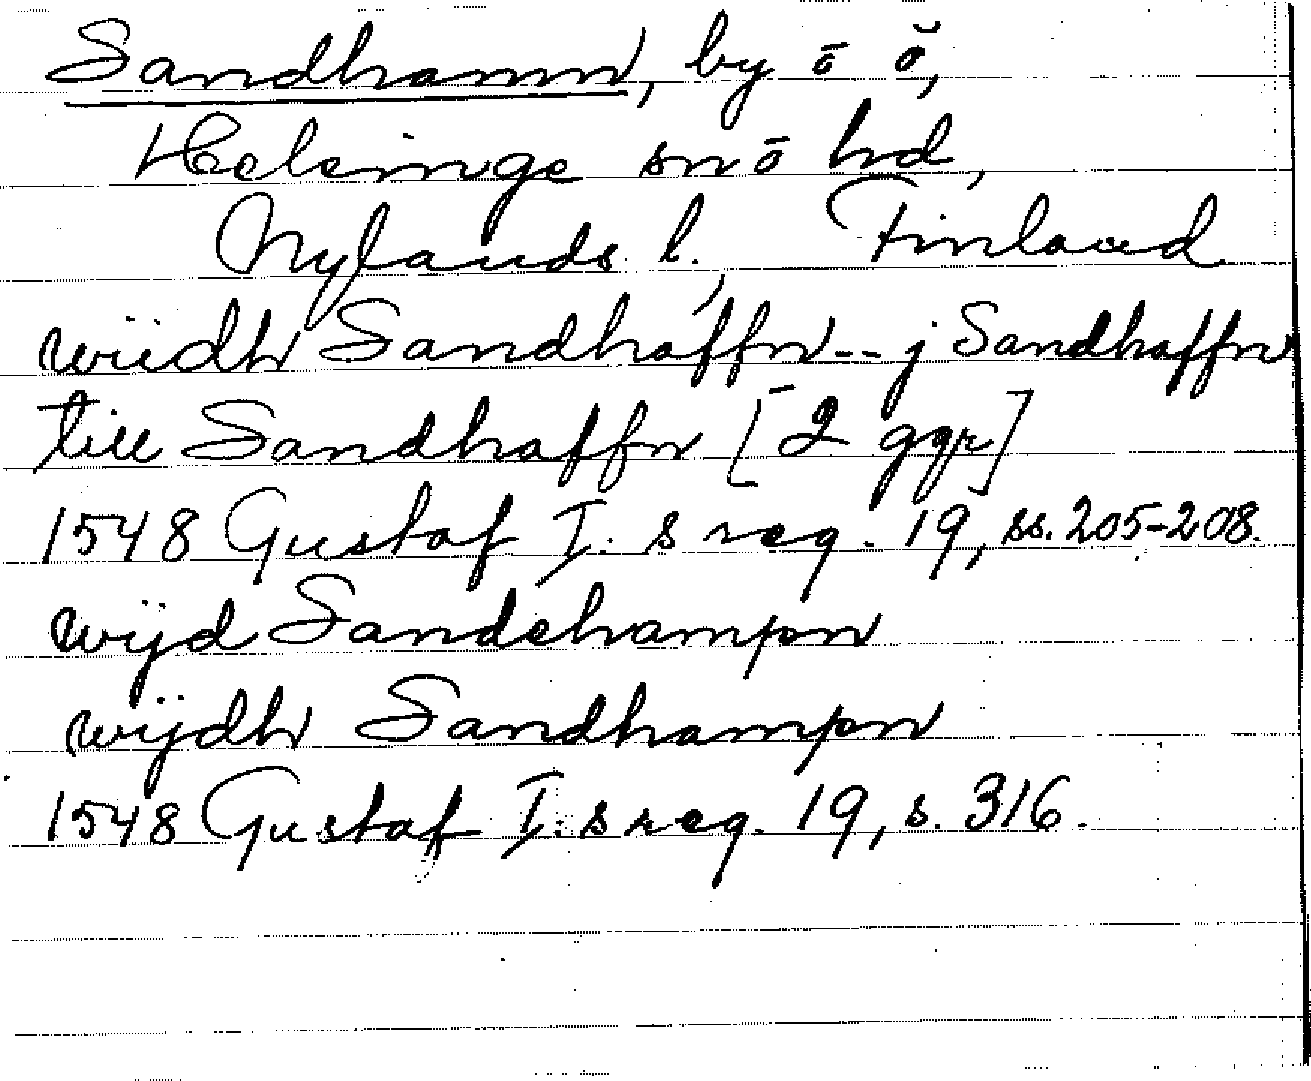 Sandhamn, by o̅ ŏ,
Helsinge sn o̅ hd,
Nylands l., Finland
wiidh Sandhaffn -- j Sandhaffn
till Sandhaffn [2 ggr]
1548 Gustaf I:s reg. 19, ss. 205-208.
wijd Sandehampn
wijdh Sandhampn
1548 Gustaf I:s reg. 19, s. 316.